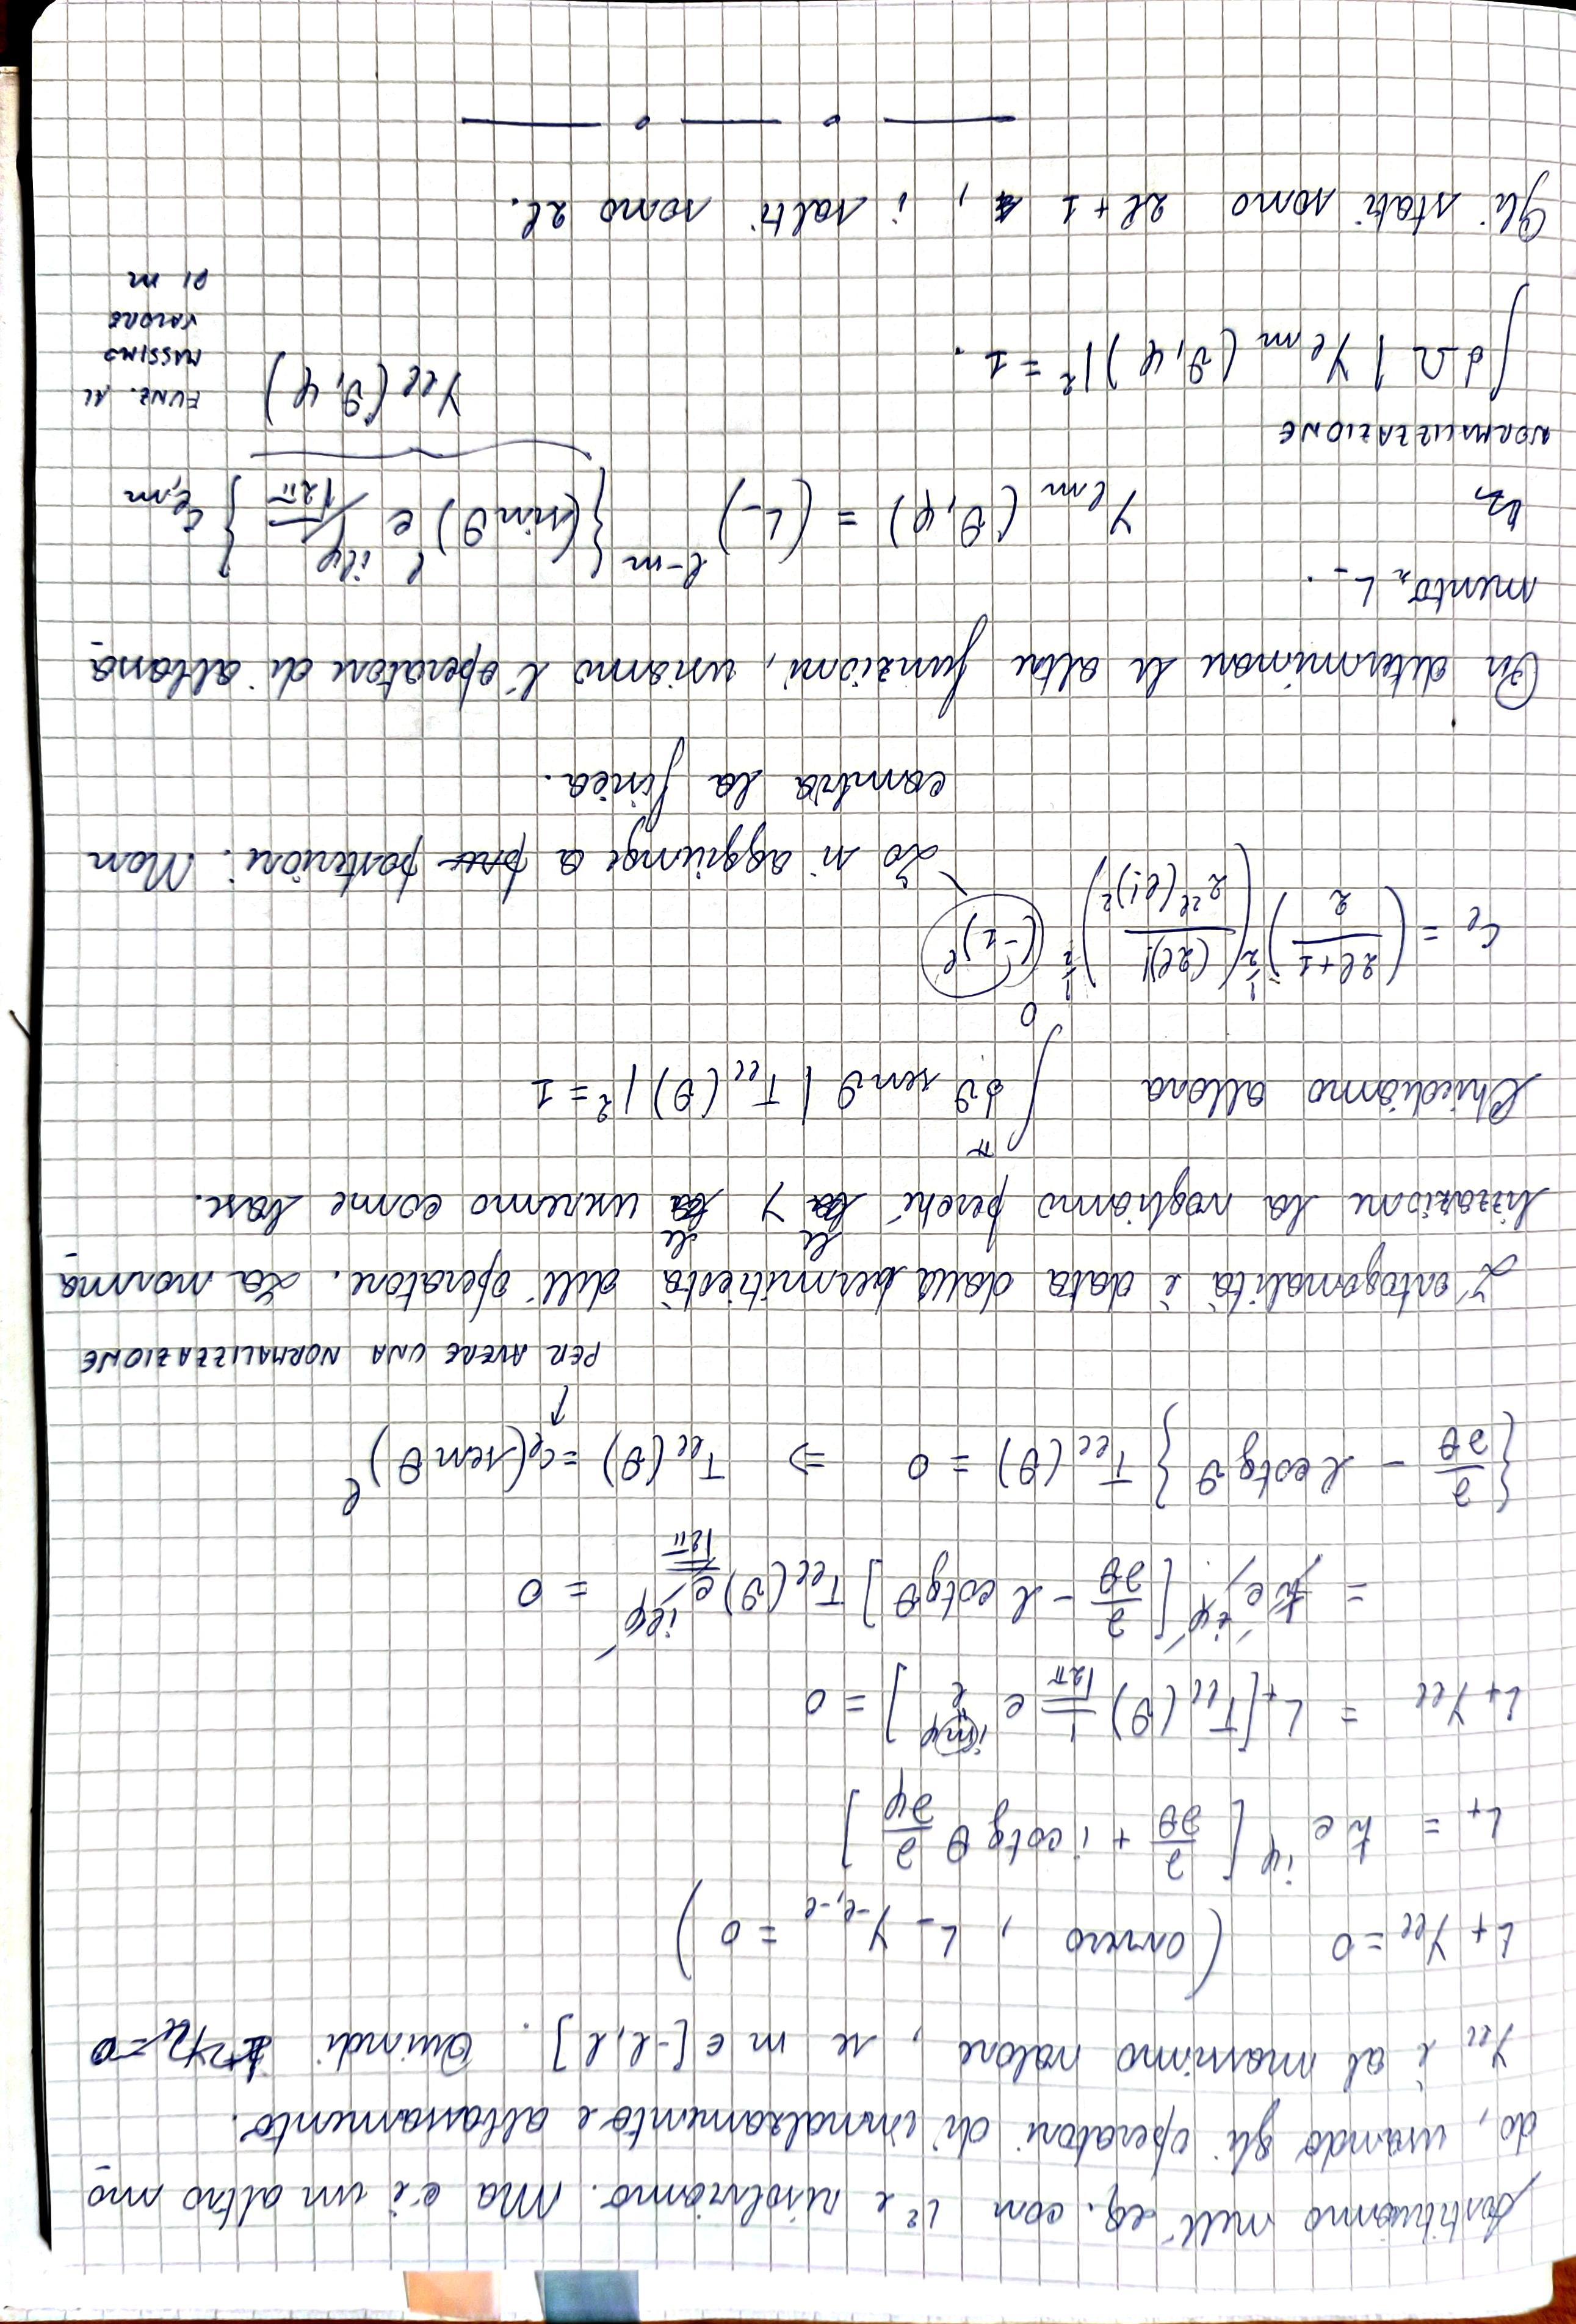 Sostituiamo nell'eq. con L² e risolviamo. Ma c'è un altro mo
do, usando gli operatori di innalzamento e abbassamento.
Yₗₗ è al massimo valore, se m ∈ [-l, l]. Quindi
L₊ Yₗₗ = 0 (ovvero, L₋ Y₋ₗ,₋ₗ = 0)
L₊ = ℏ e^{iφ} [∂/∂θ + i cotg θ ∂/∂φ]
L₊ Yₗₗ = L₊ [Tₗₗ(ϑ) 1/√2π e^{imφ}] = 0
l
= ℏ e^{iφ} [∂/∂θ - l cotg θ] Tₗₗ(ϑ) e^{ilφ}/√2π = 0
{∂/∂θ - l cotg ϑ} Tₗₗ(ϑ) = 0 ⇒ Tₗₗ(ϑ) = cₗ (sen θ)^l
↑
PER AVERE UNA NORMALIZZAZIONE
L'ortogonalità è data dalla hermiticità dell'operatore. La norma
lizzazione la vogliamo perché le Y le useremo come base.
Chiediamo allora ∫₀^π dϑ sen ϑ |Tₗₗ(ϑ)|² = 1
cₗ = ((2l+1)/2)^{1/2} ((2l)!/(2^{2l}(l!)²))^{1/2} (-1)^l
Lo si aggiunge a posteriori. Non
cambia la fisica.
Per determinare le altre funzioni, usiamo l'operatore di abbassa
mento, L₋.
Yₗₘ(ϑ,φ) = (L₋)^{l-m} {(sin θ)^l e^{ilφ}/√2π} c_{l,m}
NORMALIZZAZIONE
Yₗₗ(ϑ,φ) FUNZ. AL
MASSIMO
VALORE
DI m
∫dΩ |Yₗₘ(ϑ,φ)|² = 1.
Gli stati sono 2l+1, i salti sono 2l.